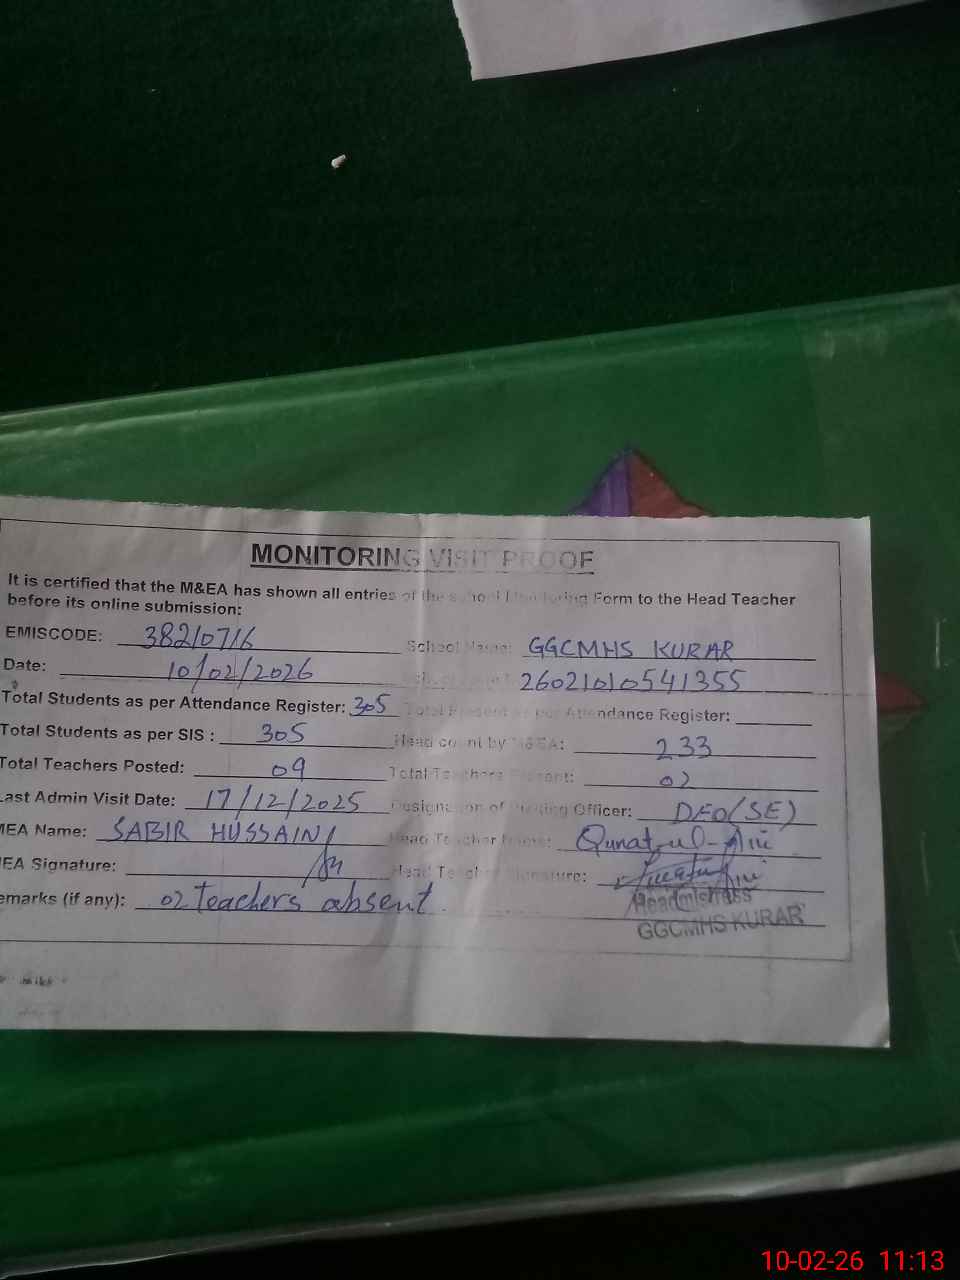 MONITORING VISIT PROOF
It is certified that the M&EA has shown all entries of the school Monitoring Form to the Head Teacher
before its online submission:
EMISCODE: 38210716 School Name: GGCMHS KURAR
Date: 10/02/2026 26021010541355
Total Students as per Attendance Register: 305 Total Present as per Attendance Register:
Total Students as per SIS : 305 Head count by M&EA: 233
Total Teachers Posted: 09 Total Teachers Present: 02
Last Admin Visit Date: 17/12/2025 Designation of Visiting Officer: DEO(SE)
MEA Name: SABIR HUSSAIN Head Teacher Name: Qunat-ul-Ain
MEA Signature: Head Teacher Signature:
emarks (if any): 02 Teachers absent
Headmistress
GGCMHS KURAR
10-02-26 11:13